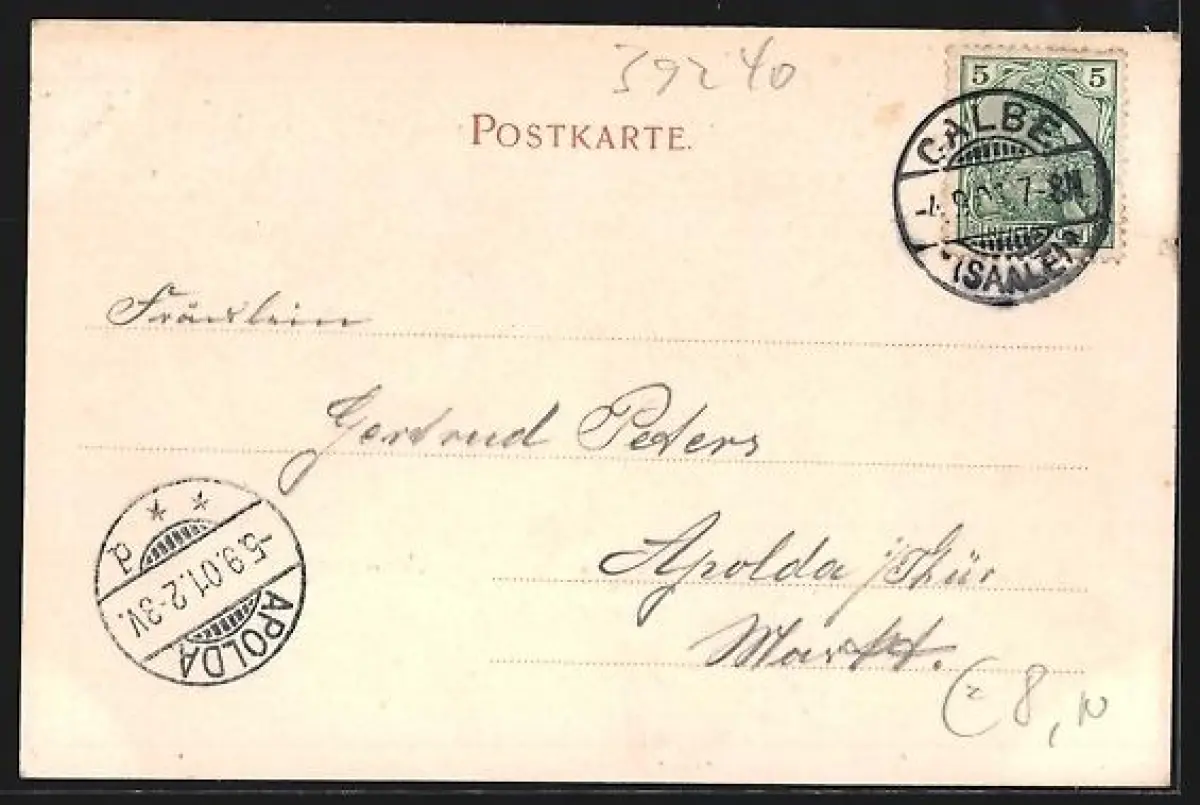 39240
POSTKARTE.
5 5
CALBE
-4.9.01. 7-8N
(SAALE)
Fräulein
Gertrud Peters
Apolda i/Thür
Markt.
d
-5.9.01.2-3V.
APOLDA
8,